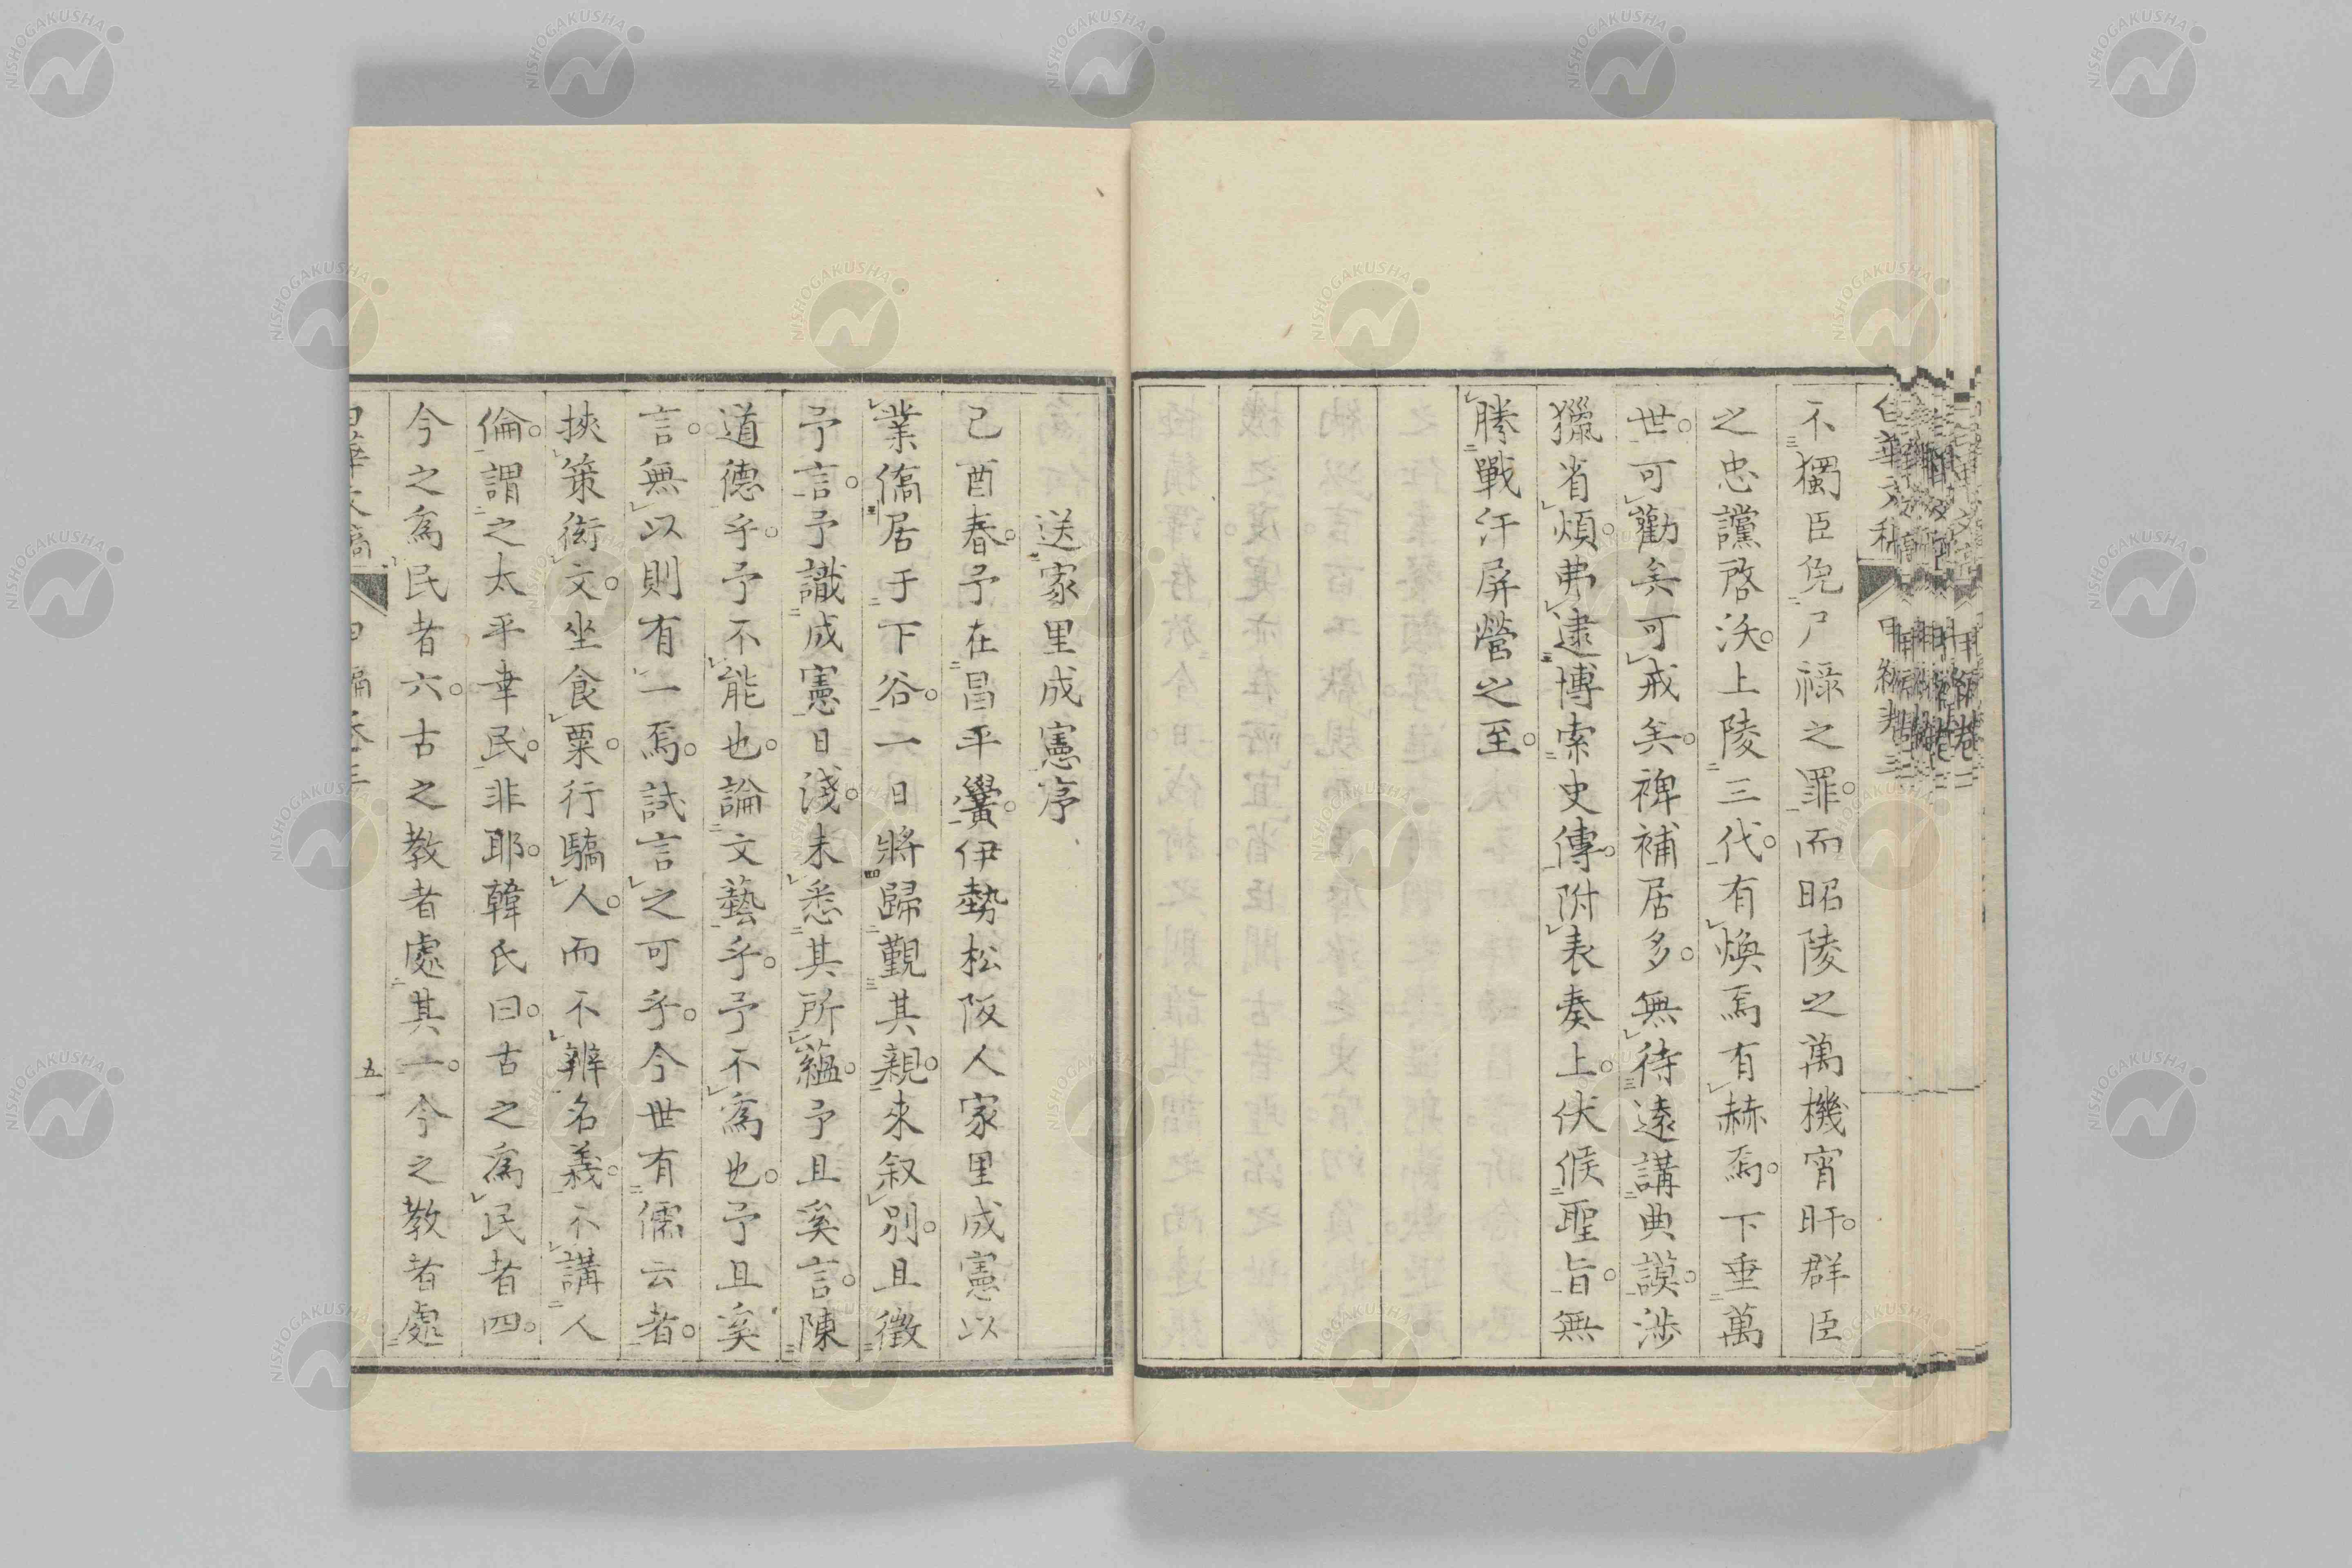 不獨臣免尸祿之罪。而昭陵之萬機宵旰。群臣
之忠讜啓沃。上陵三代。有煥焉有赫焉。下垂萬
世。可勸矣可戒矣。裨補居多。無待遠講典謨。涉
獵省煩。弗逮博索史傳。附表奏上。伏候聖旨。無
勝戰汗屏營之至。
送家里成憲序
己酉春。予在昌平黌。伊勢松阪人家里成憲以
業僑居于下谷。一日將歸觀其親。來叙別。且徵
予言。予識成憲日淺。未悉其所蘊。予且奚言。陳
道德乎。予不能也。論文藝乎。予不爲也。予且奚
言。無以則有一焉。試言之可乎。今世有儒云者。
挾策衒文。坐食粟。行驕人。而不辨名義。不講人
倫。謂之太平幸民。非耶。韓氏曰。古之爲民者四。
今之爲民者六。古之教者處其一。今之教者處
五
NISHOGAKUSHA